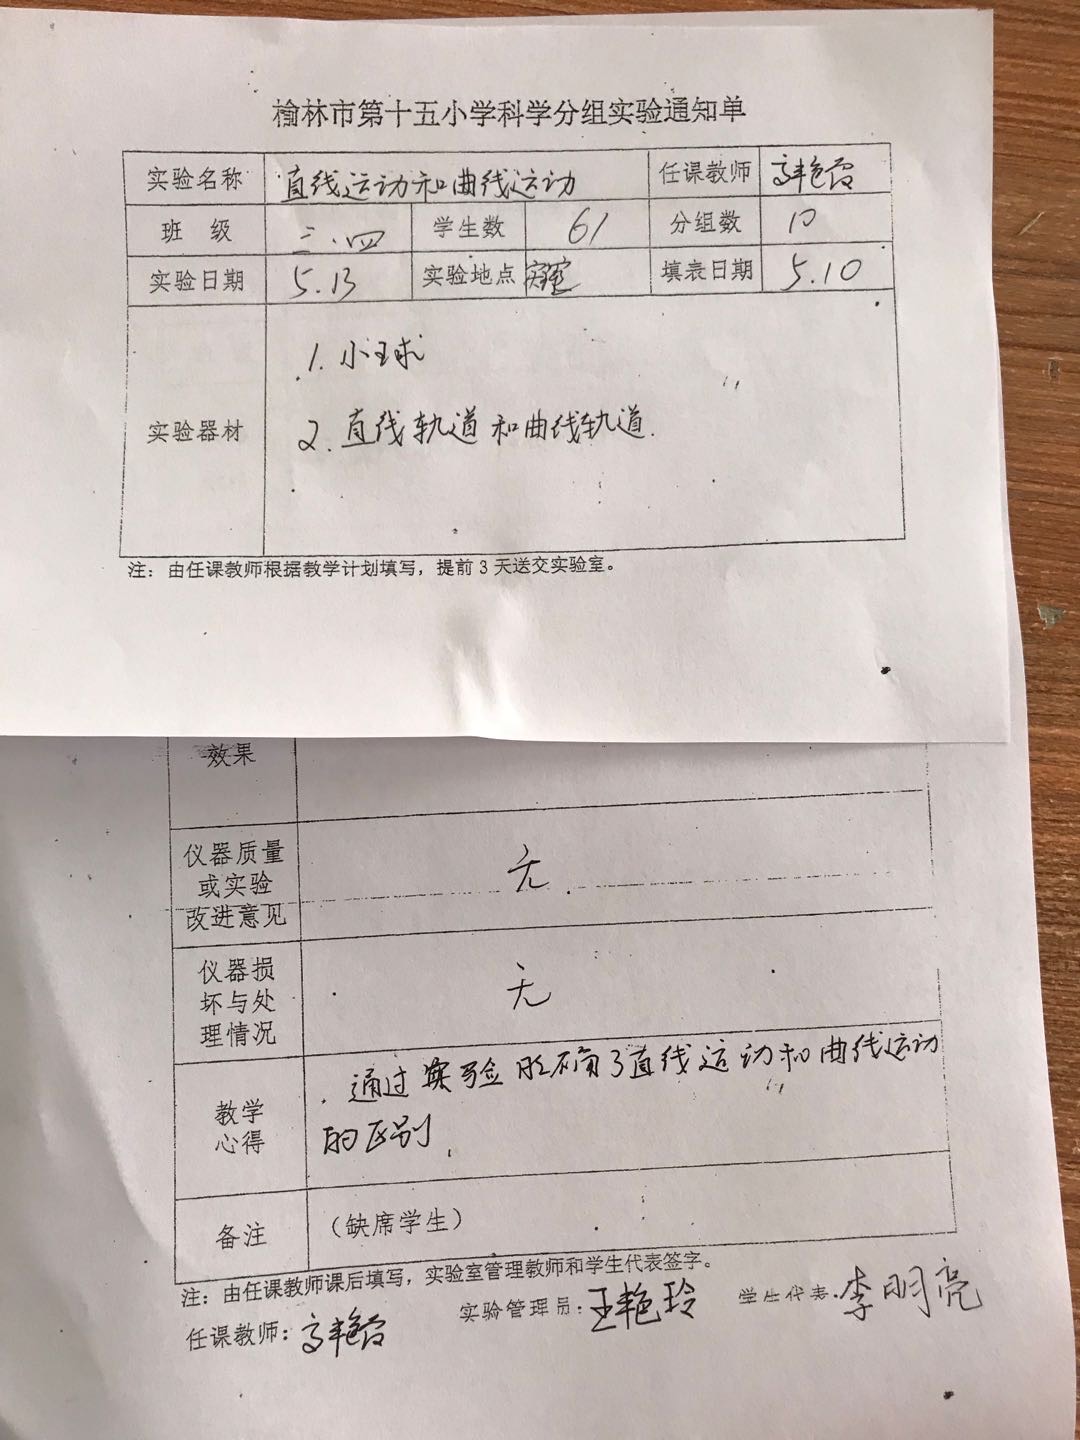 榆林市第十五小学科学分组实验通知单
实验名称 直线运动和曲线运动 任课教师 高艳霞
班 级 三.四 学生数 61 分组数 10
实验日期 5.13 实验地点 填表日期 5.10
1. 小球
实验器材
2. 直线轨道和曲线轨道.
注：由任课教师根据教学计划填写，提前 3 天送交实验室。
效果
仪器质量
或实验
改进意见
无.
仪器损
坏与处
理情况
无
教学
心得
通过实验明确了直线运动和曲线运动
的区别.
备注 （缺席学生）
注：由任课教师课后填写，实验室管理教师和学生代表签字。
任课教师：高艳霞 实验管理员：王艳玲 学生代表：李明亮